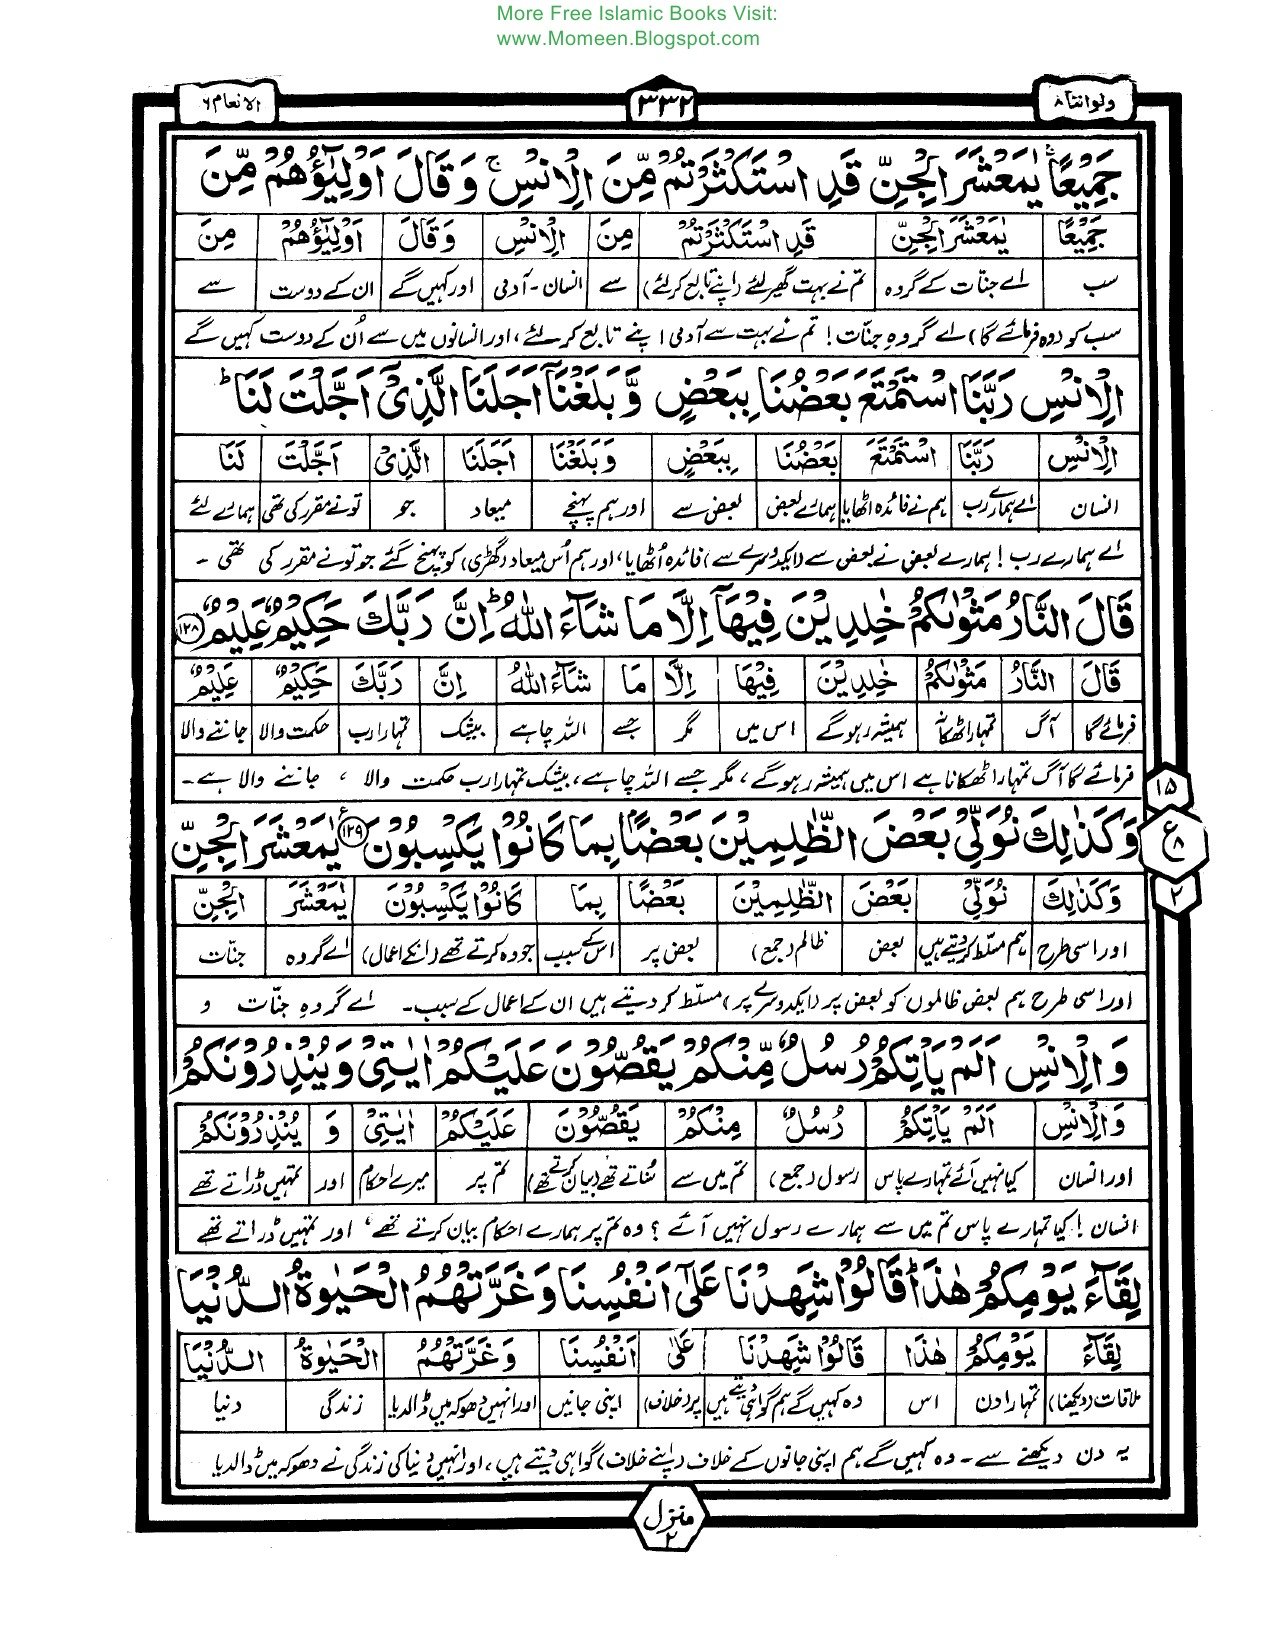 More Free Islamic Books Visit:
www.Momeen.Blogspot.com
ولواننا ۸
۳۳۲
الانعام ۶
جَمِيْعًا ۚ يٰمَعْشَرَ الْجِنِّ قَدِ اسْتَكْثَرْتُمْ مِّنَ الْاِنْسِ ۚ وَ قَالَ اَوْلِيٰٓؤُهُمْ مِّنَ
جَمِيْعًا يٰمَعْشَرَ الْجِنِّ قَدِ اسْتَكْثَرْتُمْ مِنَ الْاِنْسِ وَ قَالَ اَوْلِيٰٓؤُهُمْ مِنَ
سب اے جنّات کے گروہ تم نے بہت گھیر لئے (اپنے تابع کر لئے) سے انسان - آدمی اور کہیں گے ان کے دوست سے
سب کو (وہ فرمائے گا) اے گروہِ جنّات! تم نے بہت سے آدمی اپنے تابع کر لئے، اور انسانوں میں سے اُن کے دوست کہیں گے
الْاِنْسِ رَبَّنَا اسْتَمْتَعَ بَعْضُنَا بِبَعْضٍ وَّ بَلَغْنَآ اَجَلَنَا الَّذِيْٓ اَجَّلْتَ لَنَا ؕ
الْاِنْسِ رَبَّنَا اسْتَمْتَعَ بَعْضُنَا بِبَعْضٍ وَ بَلَغْنَا اَجَلَنَا الَّذِيْ اَجَّلْتَ لَنَا
انسان اے ہمارے رب ہم نے فائدہ اٹھایا ہمارے بعض بعض سے اور ہم پہنچے میعاد جو تو نے مقرر کی تھی ہمارے لئے
اے ہمارے رب! ہمارے بعض نے بعض سے (ایک دوسرے سے) فائدہ اُٹھایا، اور ہم اُس میعاد (گھڑی) کو پہنچ گئے جو تو نے مقرر کی تھی -
قَالَ النَّارُ مَثْوٰىكُمْ خٰلِدِيْنَ فِيْهَآ اِلَّا مَا شَآءَ اللّٰهُ ؕ اِنَّ رَبَّكَ حَكِيْمٌ عَلِيْمٌ ۱۲۸
قَالَ النَّارُ مَثْوٰىكُمْ خٰلِدِيْنَ فِيْهَا اِلَّا مَا شَآءَ اللّٰهُ اِنَّ رَبَّكَ حَكِيْمٌ عَلِيْمٌ
فرمائے گا آگ تمہارا ٹھکانہ ہمیشہ رہو گے اس میں مگر جسے اللہ چاہے بیشک تمہارا رب حکمت والا جاننے والا
فرمائے گا آگ تمہارا ٹھکانا ہے اس میں ہمیشہ رہو گے، مگر جسے اللہ چاہے، بیشک تمہارا رب حکمت والا، جاننے والا ہے -
۱۵
وَ كَذٰلِكَ نُوَلِّيْ بَعْضَ الظّٰلِمِيْنَ بَعْضًاۢ بِمَا كَانُوْا يَكْسِبُوْنَ ۱۲۹ يٰمَعْشَرَ الْجِنِّ
ع ۸
وَ كَذٰلِكَ نُوَلِّيْ بَعْضَ الظّٰلِمِيْنَ بَعْضًا بِمَا كَانُوْا يَكْسِبُوْنَ يٰمَعْشَرَ الْجِنِّ
۲
اور اسی طرح ہم مسلّط کر دیتے ہیں بعض ظالم (جمع) بعض پر اس کے سبب جو وہ کرتے تھے (انکے اعمال) اے گروہ جنّات
اور اسی طرح ہم بعض ظالموں کو بعض پر (ایک دوسرے پر) مسلّط کر دیتے ہیں ان کے اعمال کے سبب - اے گروہِ جنّات و
وَ الْاِنْسِ اَلَمْ يَاْتِكُمْ رُسُلٌ مِّنْكُمْ يَقُصُّوْنَ عَلَيْكُمْ اٰيٰتِيْ وَ يُنْذِرُوْنَكُمْ
وَ الْاِنْسِ اَلَمْ يَاْتِكُمْ رُسُلٌ مِنْكُمْ يَقُصُّوْنَ عَلَيْكُمْ اٰيٰتِيْ وَ يُنْذِرُوْنَكُمْ
اور انسان کیا نہیں آئے تمہارے پاس رسول (جمع) تم میں سے سناتے تھے (بیان کرتے تھے) تم پر میرے احکام اور تمہیں ڈراتے تھے
انسان! کیا تمہارے پاس تم میں سے ہمارے رسول نہیں آئے؟ وہ تم پر ہمارے احکام بیان کرتے تھے، اور تمہیں ڈراتے تھے
لِقَآءَ يَوْمِكُمْ هٰذَا ؕ قَالُوْا شَهِدْنَا عَلٰٓى اَنْفُسِنَا وَ غَرَّتْهُمُ الْحَيٰوةُ الدُّنْيَا
لِقَآءَ يَوْمِكُمْ هٰذَا قَالُوْا شَهِدْنَا عَلٰٓى اَنْفُسِنَا وَ غَرَّتْهُمُ الْحَيٰوةُ الدُّنْيَا
ملاقات (دیکھنا) تمہارا دن اس وہ کہیں گے ہم گواہی دیتے ہیں پر (خلاف) اپنی جانیں اور انہیں دھوکہ میں ڈالدیا زندگی دنیا
یہ دن دیکھنے سے - وہ کہیں گے ہم اپنی جانوں کے خلاف (اپنے خلاف) گواہی دیتے ہیں، اور انہیں دنیا کی زندگی نے دھوکہ میں ڈالدیا
منزل ۲